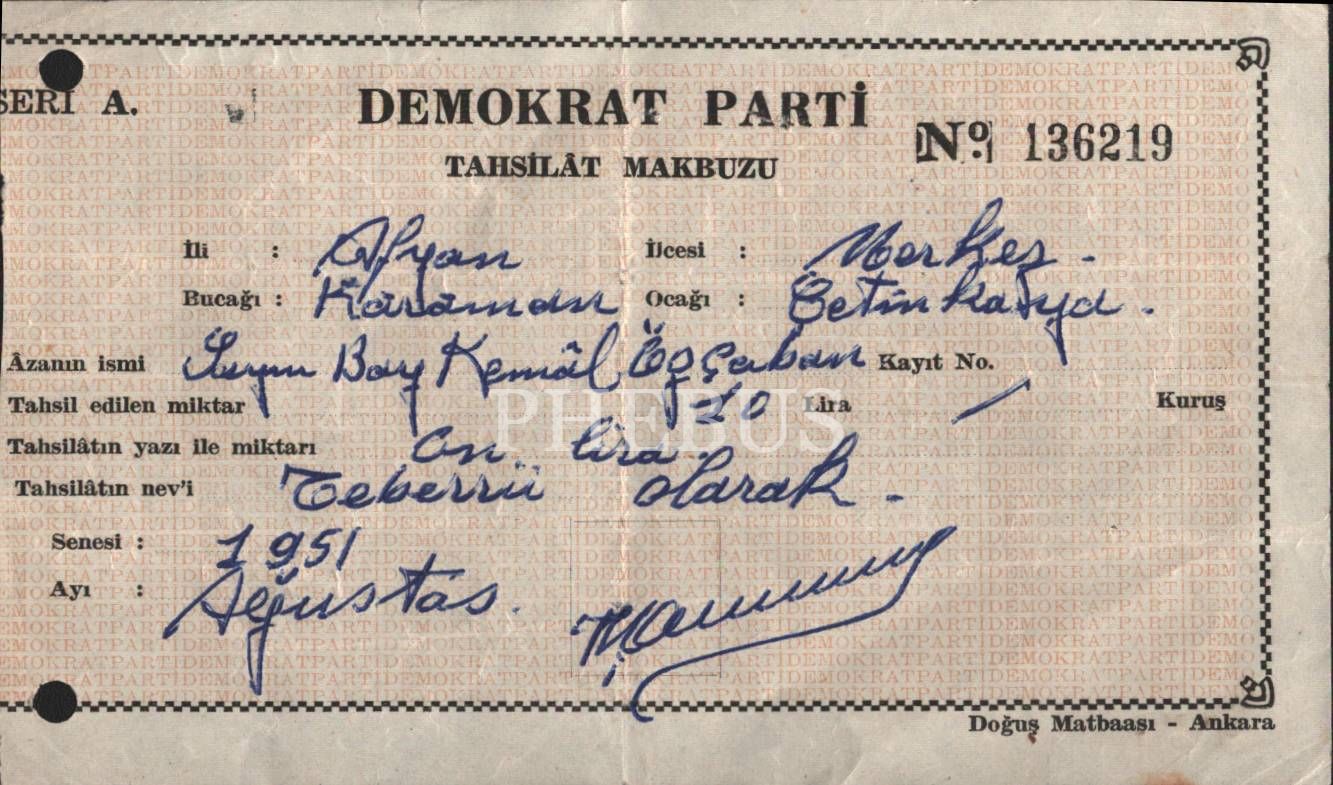 SERİ A.
DEMOKRAT PARTİ
No 136219
TAHSİLÂT MAKBUZU
İli : Afyon İlcesi : Merkez.
Bucağı : Karaman Ocağı : Çetinkaya.
Âzanın ismi Sayın Bay Kemâl Özçoban Kayıt No.
Tahsil edilen miktar 10 Lira / Kuruş
Tahsilâtın yazı ile miktarı On lira.
Tahsilâtın nev'i Teberrü olarak.
Senesi : 1951
Ayı : Ağustos.
Doğuş Matbaası - Ankara
PHEBUS